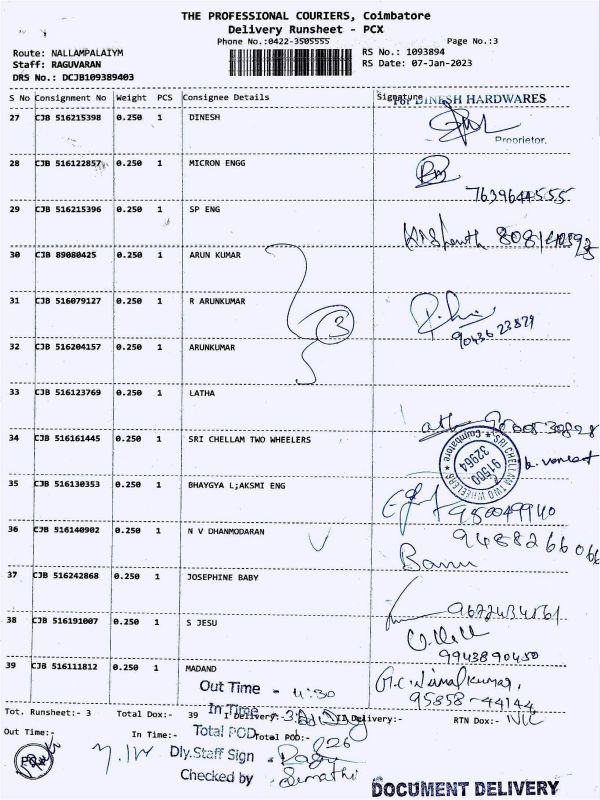 THE PROFESSIONAL COURIERS, Coimbatore
Delivery Runsheet - PCX
Phone No.:0422-3505555 Page No.:3
Route: NALLAMPALAIYM RS No.: 1093894
Staff: RAGUVARAN RS Date: 07-Jan-2023
DRS No.: DCJB109389403
S No Consignment No Weight PCS Consignee Details Signature
For DINESH HARDWARES
27 CJB 516215398 0.250 1 DINESH
Proprietor.
28 CJB 516122857 0.250 1 MICRON ENGG
7639644555
29 CJB 516215396 0.250 1 SP ENG
30 CJB 89080425 0.250 1 ARUN KUMAR
31 CJB 516079127 0.250 1 R ARUNKUMAR
3
9043623829
32 CJB 516204157 0.250 1 ARUNKUMAR
33 CJB 516123769 0.250 1 LATHA
34 CJB 516161445 0.250 1 SRI CHELLAM TWO WHEELERS
SRI CHELLAM TWO WHEELERS * Coimbatore *
91500
32964
35 CJB 516130353 0.250 1 BHAYGYA L;AKSMI ENG
36 CJB 516140902 0.250 1 N V DHANMODARAN
9488266066
Banu
37 CJB 516242868 0.250 1 JOSEPHINE BABY
38 CJB 516191007 0.250 1 S JESU
9943890450
39 CJB 516111812 0.250 1 MADAND
G.C. Nirmalkumar,
95858-44144
Out Time - 4:30
Tot. Runsheet:- 3 Total Dox:- 39 I Delivery:- II Delivery:- RTN Dox:- NIL
In Time
Out Time:- In Time:- Total POD:-
Total POD
Dly.Staff Sign - Ragu
Checked by
DOCUMENT DELIVERY